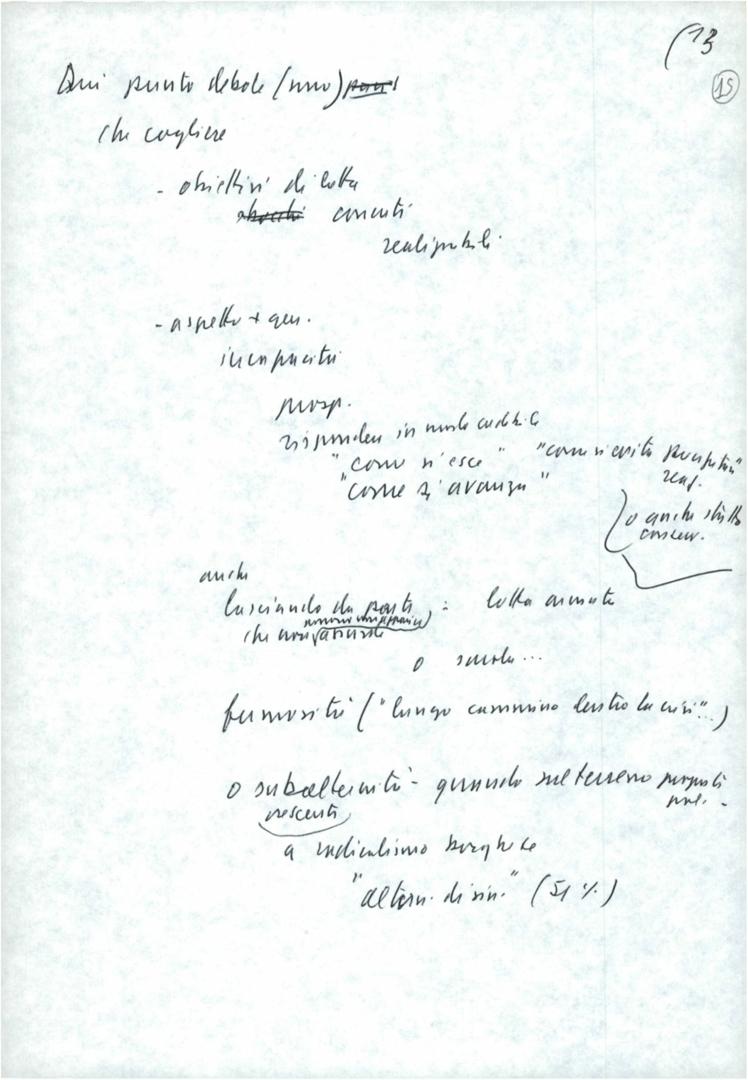 (13
15
Qui punto debole (uno)
che cogliere
- obiettivi di lotta
concreti
realizzabili
- aspetto + gen.
incapacità
prosp.
rispondere in modo credibile
"come si esce" "come si evita
"come si avanza"
reaz.
o anche
conserv.
anche
lasciando da parti : lotta armata
che
o scuola...
fumosità ("lungo cammino dentro la crisi"...)
o subalternità - quando sul terreno proposti
crescenti
a radicalismo borghese
"altern. di sin." (51 %)